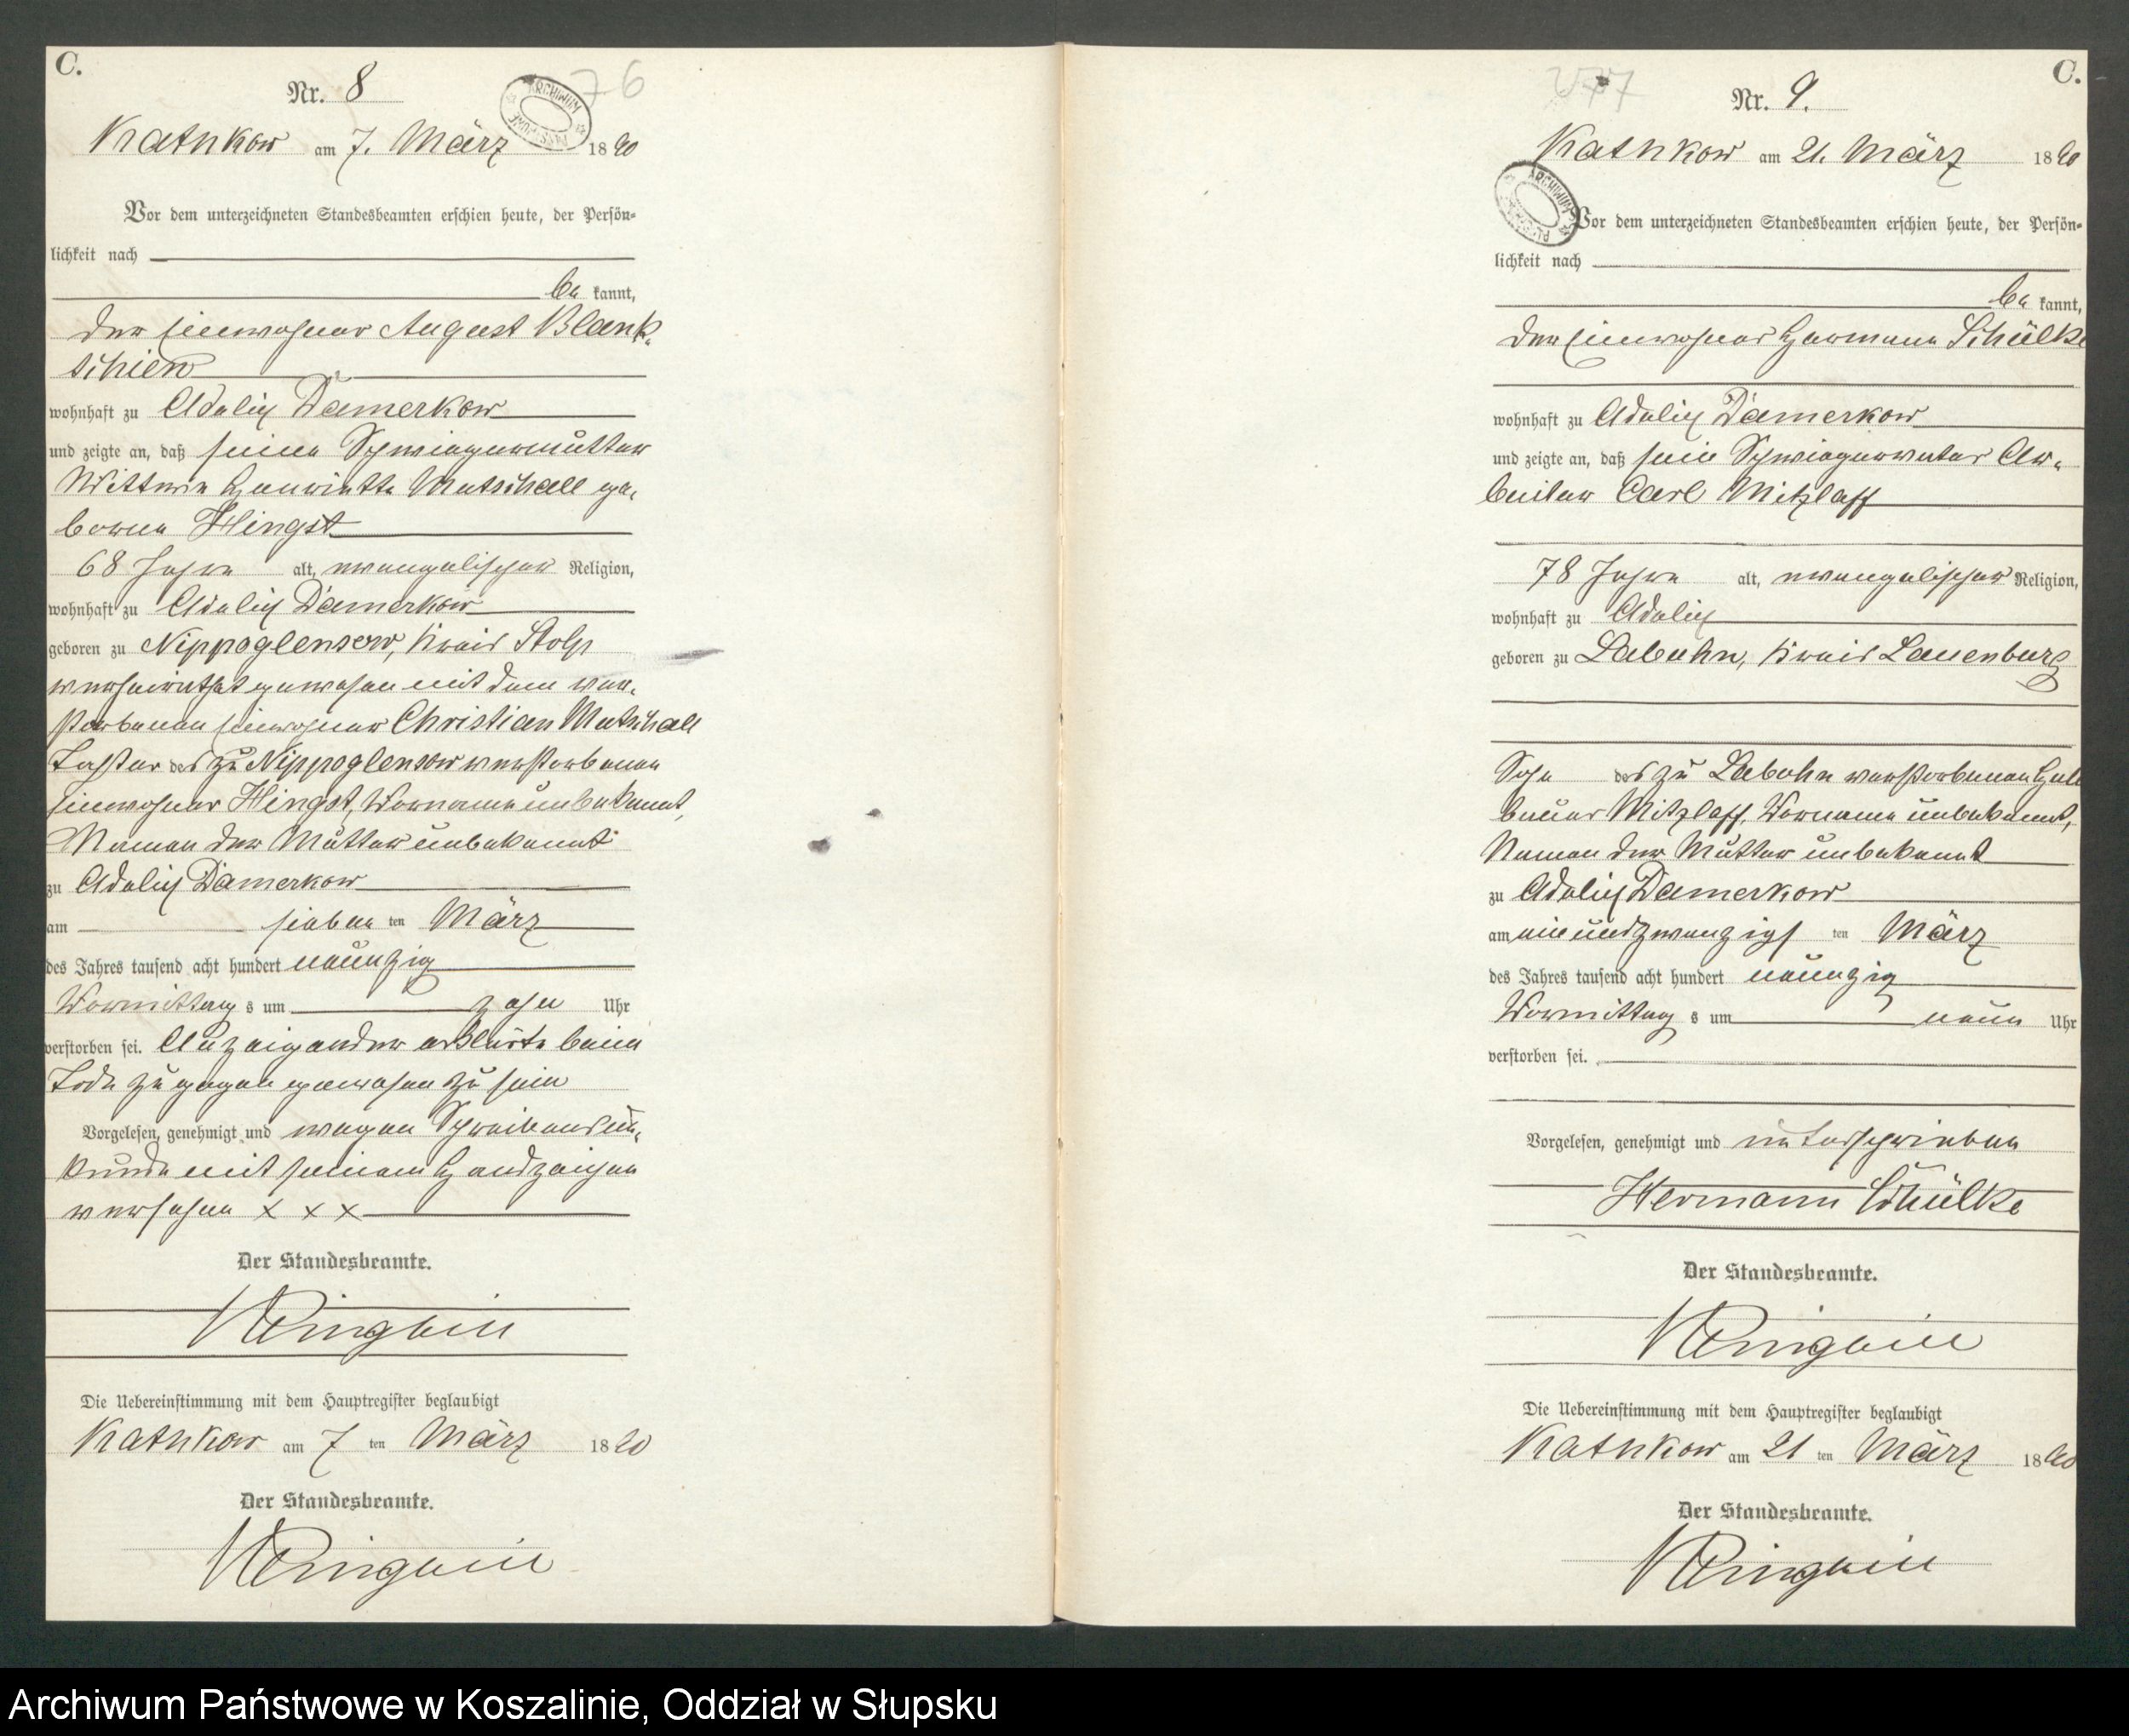 C.
Nr. 8
76
ARCHIWUM
Kathkow am 7. März 1890
Vor dem unterzeichneten Standesbeamten erschien heute, der Persön-
lichkeit nach
be kannt,
der Einwohner August Blank-
schien
wohnhaft zu Adelig Damerkow
und zeigte an, daß seine Schwiegermutter
Wittwe Henriette Mutschall ge-
borene Hingst
68 Jahre alt, evangelischer Religion,
wohnhaft zu Adelig Damerkow
geboren zu Nippoglensow, Kreis Stolp
verheirathet gewesen mit dem ver-
storbenen Einwohner Christian Mutschall
Tochter des zu Nippoglensow verstorbenen
Einwohner Hingst, Vorname unbekannt,
Namen der Mutter unbekannt
zu Adelig Damerkow
am sieben ten März
des Jahres tausend acht hundert neunzig
Vormittag s um zehn Uhr
verstorben sei. Anzeigender erklärte beim
Tode zugegen gewesen zu sein
Vorgelesen, genehmigt und wegen Schreibensun-
kunde mit seinem Handzeichen
versehen x x x
Der Standesbeamte.
Die Uebereinstimmung mit dem Hauptregister beglaubigt
Kathkow am 7 ten März 1890
Der Standesbeamte.
C.
77
Nr. 9.
Kathkow am 21. März 1890
ARCHIWUM
Vor dem unterzeichneten Standesbeamten erschien heute, der Persön-
lichkeit nach
be kannt,
der Einwohner Hermann Schülke
wohnhaft zu Adelig Damerkow
und zeigte an, daß sein Schwiegervater Ar-
beiter Carl Mitzlaff
78 Jahre alt, evangelischer Religion,
wohnhaft zu Adelig
geboren zu Labuhn, Kreis Lauenburg
Sohn des zu Labuhn verstorbenen Halb
bauer Mitzlaff, Vorname unbekannt,
Namen der Mutter unbekannt
zu Adelig Damerkow
am einundzwanzigs ten März
des Jahres tausend acht hundert neunzig
Vormittag s um neun Uhr
verstorben sei.
Vorgelesen, genehmigt und unterschrieben
Hermann Schülke
Der Standesbeamte.
Die Uebereinstimmung mit dem Hauptregister beglaubigt
Kathkow am 21 ten März 1890
Der Standesbeamte.
Archiwum Państwowe w Koszalinie, Oddział w Słupsku